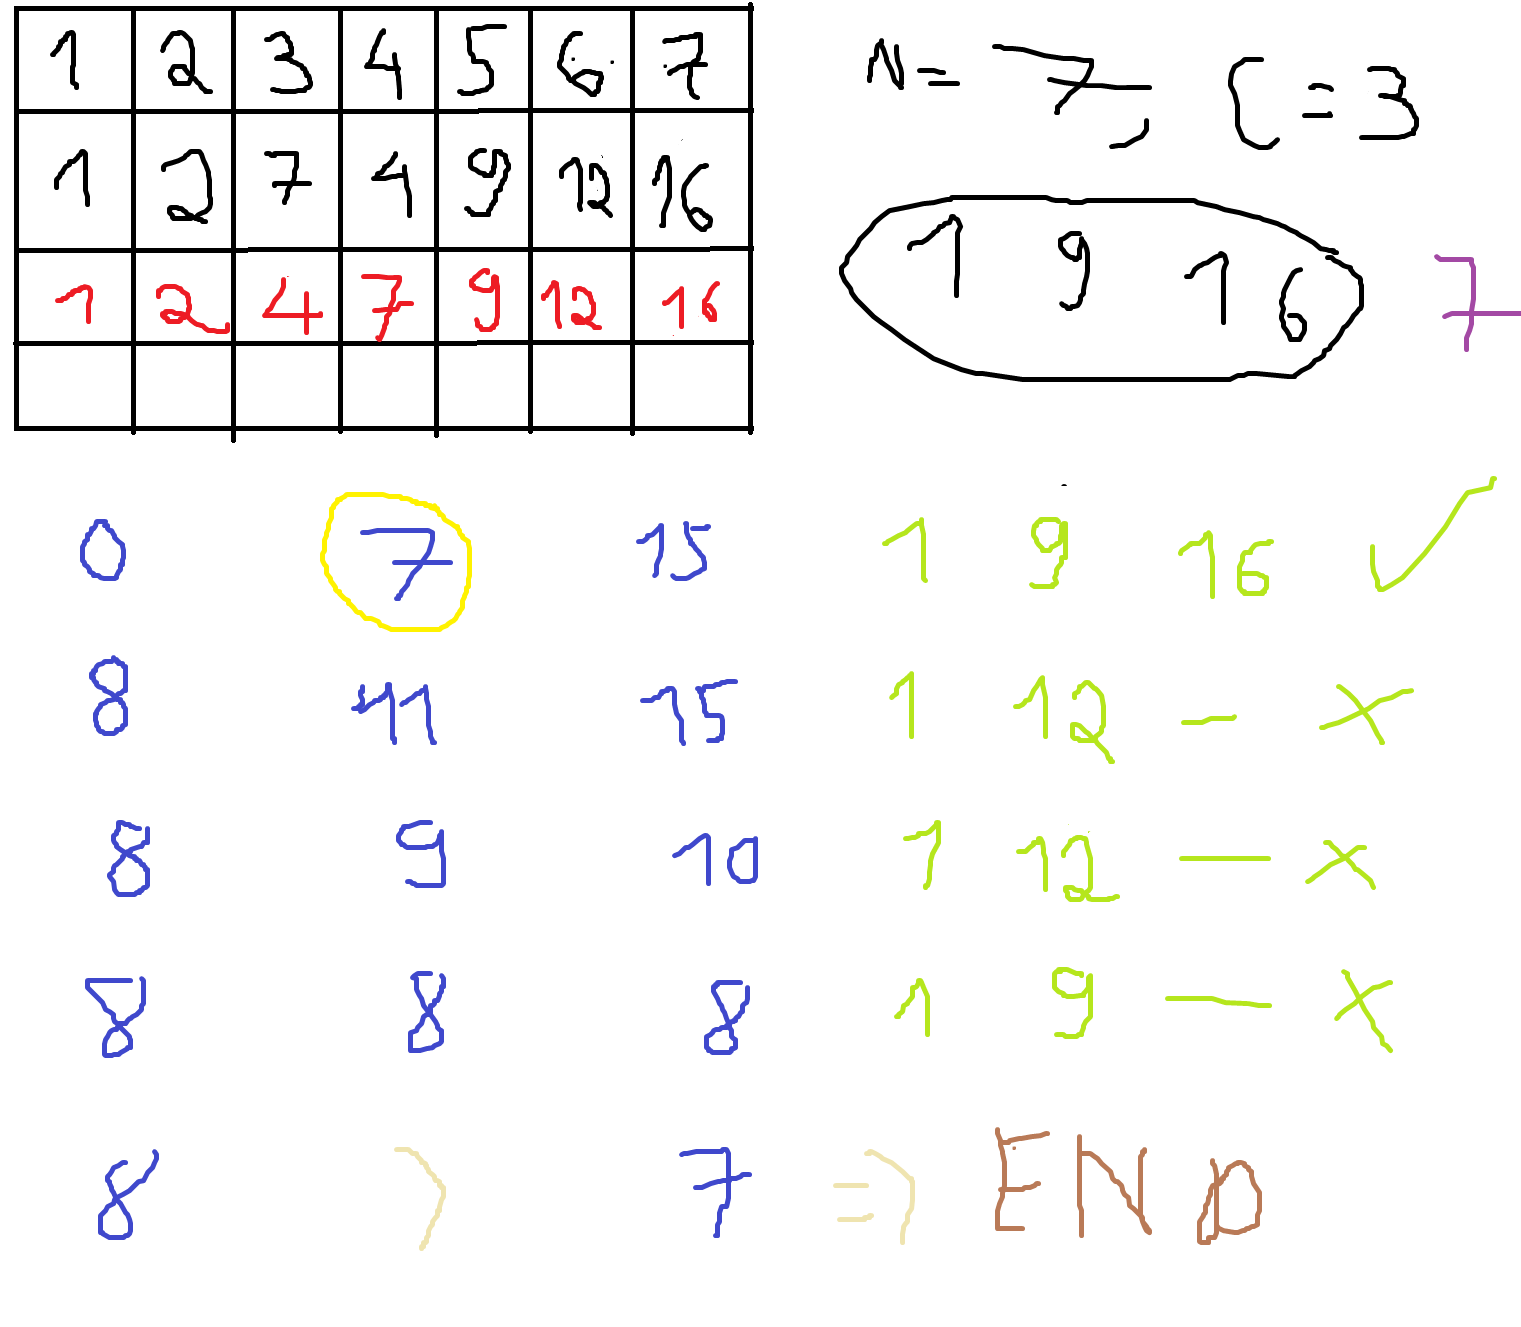 1 2 3 4 5 6 7
1 2 7 4 9 12 16
1 2 4 7 9 12 16
N = 7, C = 3
1 9 16 7
0 7 15 1 9 16 ✓
8 11 15 1 12 - ×
8 9 10 1 12 - ×
8 8 8 1 9 - ×
8 > 7 => END